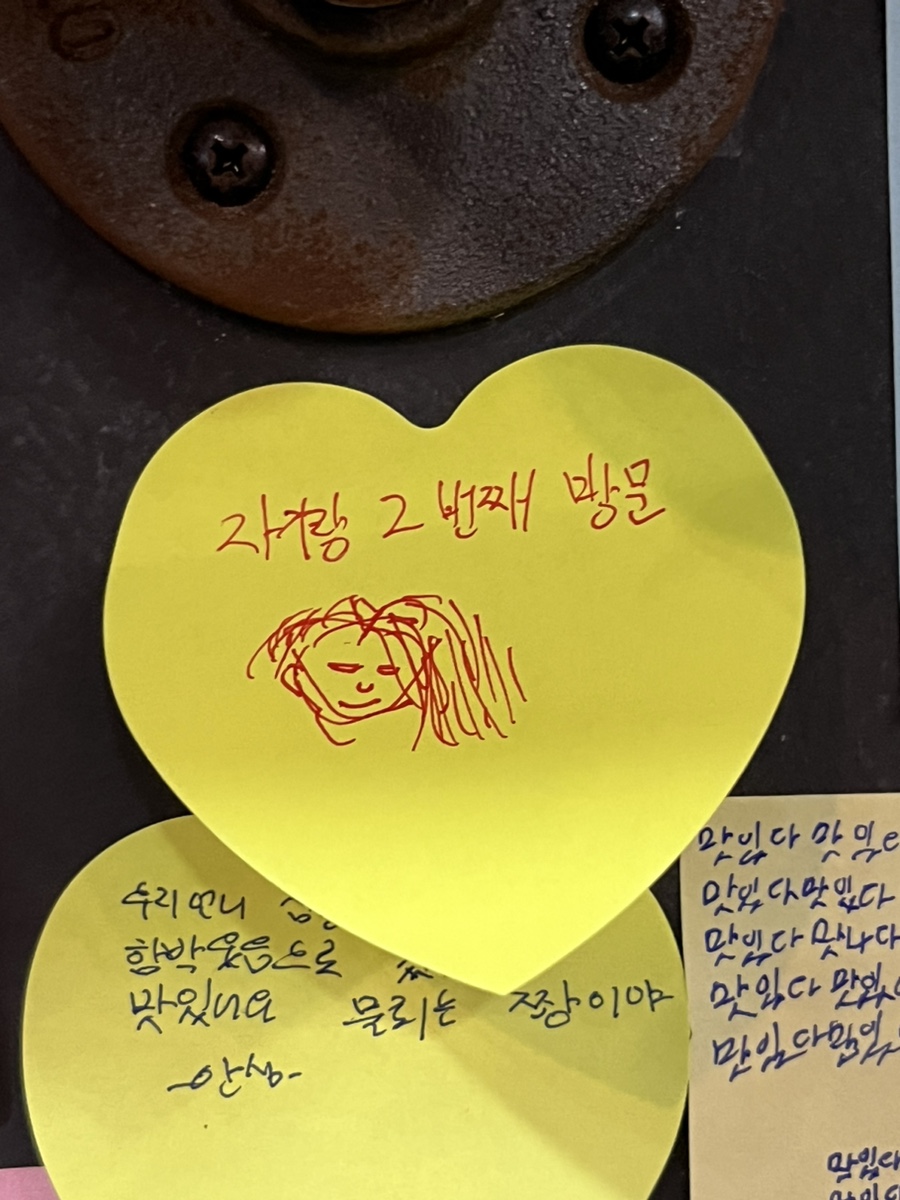 자기랑 2번째 방문
우리 언니
함박웃음으로
맛있네요 물리는 짱이야
맛있다 맛있
맛있다맛있다
맛있다 맛나다
맛있다 맛있
맛있다맛있
맛있다